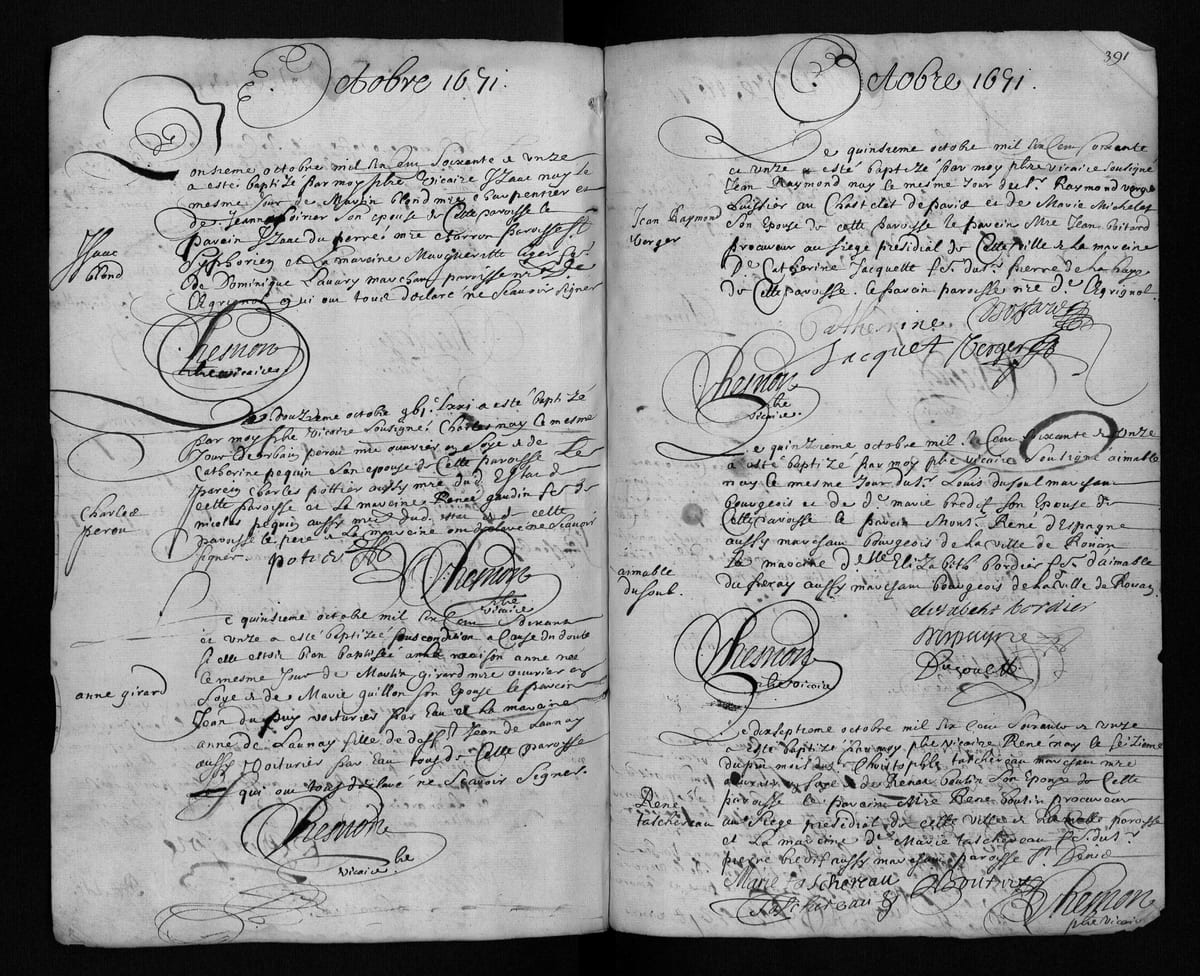 Octobre 1671.
onsieme octobre mil six cens soixante et unze
a esté baptizé par moy pbre vicaire Isaac nay le
mesme jour de Martin blond mre charpentier et
de Jeanne son epouse de Cette paroisse le
parain Isaac du perré mre paroisse St
Syphorien et La maraine Margueritte liger fe
de Dominique Lavary marchant paroisse nre de
Agrignol qui ont tous declaré ne scavoir signer
Isaac
blond
Chesmon
pbre vicaire
Le douzieme octobre a esté baptizé
par moy pbre vicaire sousigné Charles nay le mesme
jour de urbain perou mre ouvrier en soye et de
Catherine pequin son epouse de Cette paroisse Le
parein Charles pottier aussy mre dud. Estat de
cette paroisse et La maraine Renee gaudin fe de
nicolas pequin aussy mre dud. estat de cette
paroisse le pere et La maraine ont declaré ne scavoir
signer.
Charles
perou
potier
Chesmon
pbre
vicaire
Le quinsieme octobre mil six Cens Soixante
et unze a esté baptizée sous condition a Cause du doute
si elle estoit bien baptisée a la maison anne née
le mesme jour de Martin girard mre ouvrier en
soye et de Marie guillon son epouse le parein
Jean du puy voiturier par Eau et La maraine
anne de Launay fille de defft Jean de Launay
aussy voiturier par Eau tous de Cette paroisse
qui ont tous declaré ne scavoir signer.
anne girard
Chesmon
pbre
vicaire
391
Octobre 1671.
Le quinsieme octobre mil six Cens soixante
et unze a esté baptizé par moy pbre vicaire sousigné
Jean Raymond nay le mesme jour de Sr Raymond verger
huissier au Chastelet de paris et de Marie Michelet
son epouse de cette paroisse le parein Mre Jean
procureur au siege presidial de Cette ville et La maraine
De Catherine Jacquette fe du Sr pierre de la haye
de Cette paroisse. Le parein paroisse nre De Agrignol.
Jean Raymond
Verger
Catherine
Jacquet
Verger
Chesmon
pbre
vicaire.
Le quinzieme octobre mil six Cens soixante et unze
a esté baptizé par moy pbre vicaire sousigné aimable
nay le mesme jour du Sr Louis du soul marchant
bourgeois et de De marie bredif son Epouse de
Cette paroisse le parein Mons. René d'Espagne
aussy marchant bourgeois de la ville de Rouan
La maraine delle Elizabeth bordier fe d'aimable
du freray aussy marchant bourgeois de la ville de Rouan
aimable
du soul.
elizabeht bordier
Despaigne
Dusoul
Chesmon
pbre vicaire
Le dixseptieme octobre mil six Cens Soixante et unze
a esté baptizé par moy pbre vicaire René nay le seizieme
dupnt mois de Christophle taschereau marchant mre
ouvrier en soye et de Renee boutin son Epouse de Cette
paroisse le parain Mre Rene boutin procureur
au siege presidial de cette ville et de nostre paroisse
et La maraine De Marie taschereau fe du Sr
pierre bredif aussy marchant paroisse St Denis
René
taschereau
Marie taschereau
Boutin
taschereau
Chesmon
pbre vicaire